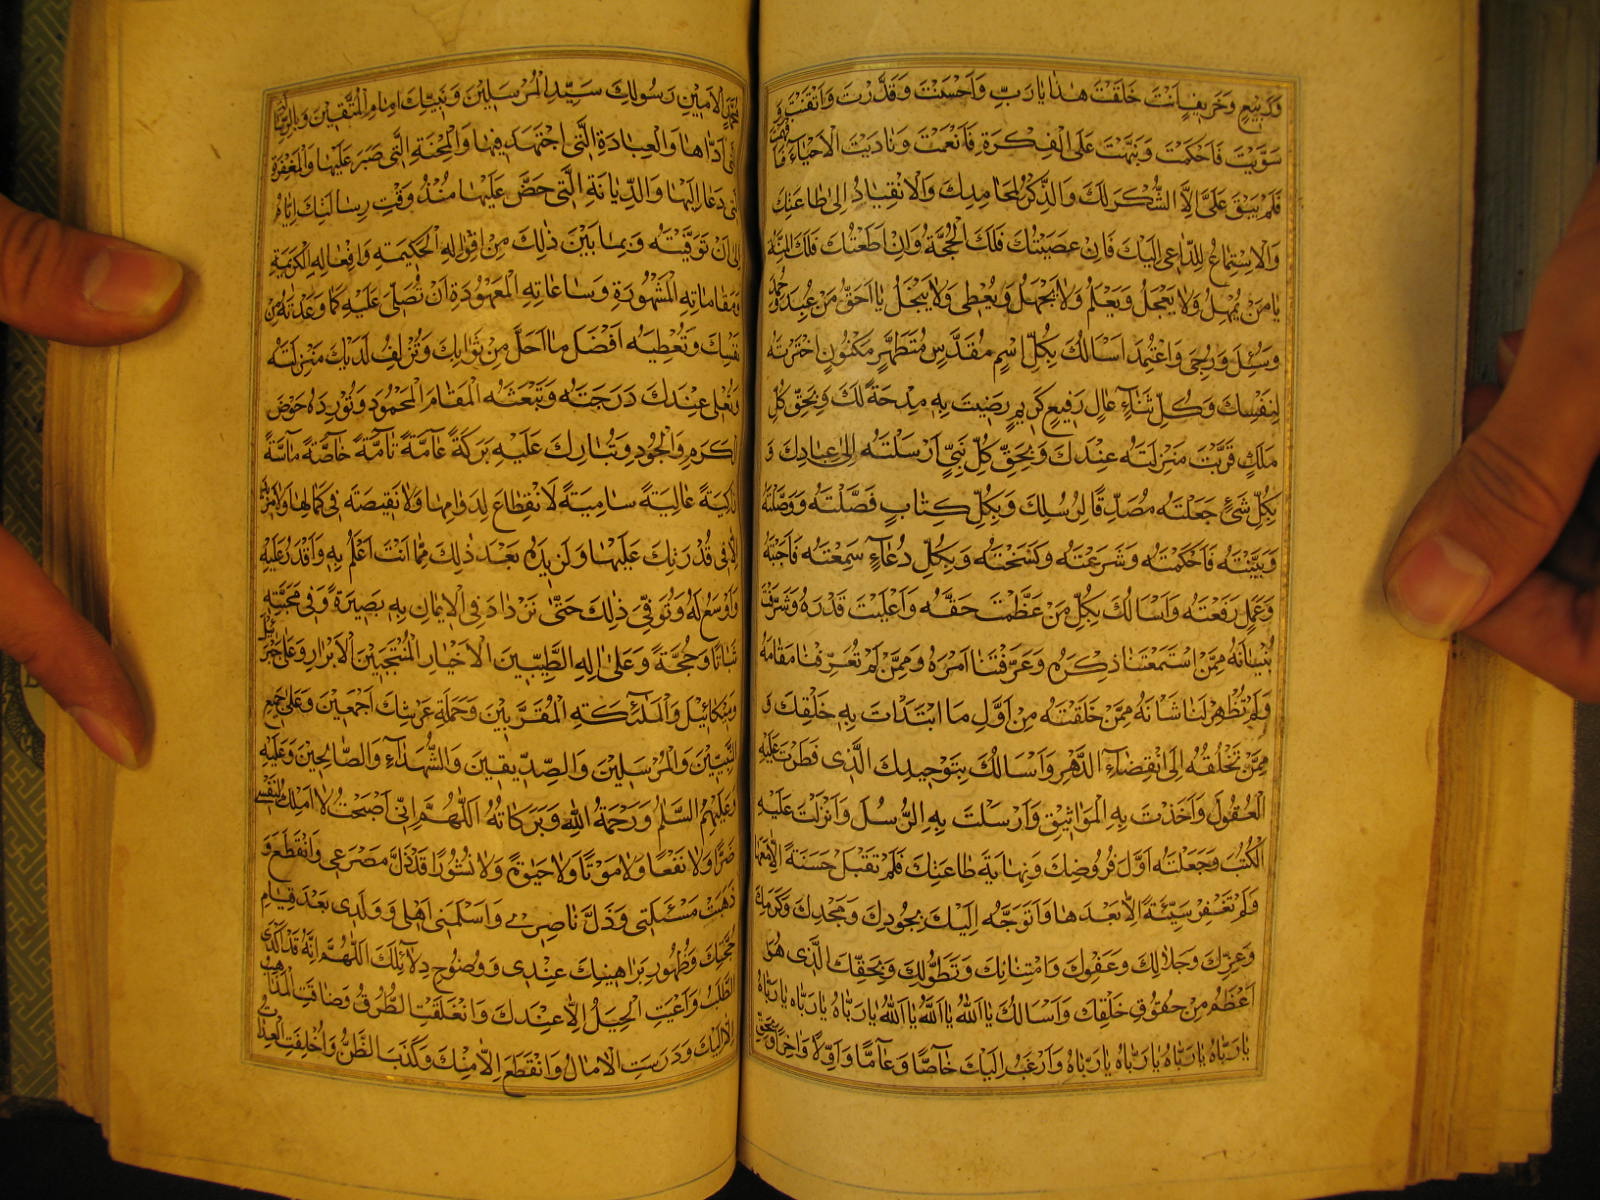 وَرَبِيعٍ وَخَرِيفٍ اَنْتَ خَلَقْتَ هٰذا يٰا رَبِّ وَاَحْسَنْتَ وَقَدَّرْتَ وَاَتْقَنْتَ وَ
سَوَّيْتَ فَاَحْكَمْتَ وَنَبَّهْتَ عَلَى الْفِكْرَةِ فَاَنْعَمْتَ وَنٰادَيْتَ الْاَحْيٰاءَ
فَلَمْ يَبْقَ عَلَىَّ اِلَّا الشُّكْرَ لَكَ وَالذِّكْرُ لِمَحٰامِدِكَ وَالْاِنْقِيٰادُ اِلىٰ طٰاعَتِكَ
وَالْاِسْتِمٰاعُ لِلدّٰاعِى اِلَيْكَ فَاِنْ عَصَيْتُكَ فَلَكَ الْحُجَّةُ وَاِنْ اَطَعْتُكَ فَلَكَ الْمِنَّةُ
يٰا مَنْ يُمْهِلُ وَلٰا يَعْجَلُ وَيَعْلَمُ وَلٰا يَجْهَلُ وَيُعْطِى وَلٰا يَبْخَلُ يٰا اَحَقَّ مَنْ عُبِدَ وَحُمِدَ
وَسُئِلَ وَرُجِىَ وَاعْتُمِدَ اَسْاَلُكَ بِكُلِّ اسْمٍ مُقَدَّسٍ مُتَطَهَّرٍ مَكْنُونٍ اخْتَرْتَهُ
لِنَفْسِكَ وَكُلِّ ثَنٰاءٍ عٰالٍ رَفِيعٍ كَرِيمٍ رَضِيتَ بِهِ مِدْحَةً لَكَ وَبِحَقِّ كُلِّ
مَلَكٍ قَرُبَتْ مَنْزِلَتُهُ عِنْدَكَ وَبِحَقِّ كُلِّ نَبِىٍّ اَرْسَلْتَهُ اِلىٰ عِبٰادِكَ وَ
بِكُلِّ شَىْءٍ جَعَلْتَهُ مُصَدِّقًا لِرُسُلِكَ وَبِكُلِّ كِتٰابٍ فَصَّلْتَهُ وَوَصَّلْتَهُ
وَبَيَّنْتَهُ فَاَحْكَمْتَهُ وَشَرَعْتَهُ وَنَسَخْتَهُ وَبِكُلِّ دُعٰاءٍ سَمِعْتَهُ فَاَجَبْتَهُ
وَعَمَلٍ رَفَعْتَهُ وَاَسْاَلُكَ بِكُلِّ مَنْ عَظَّمْتَ حَقَّهُ وَاَعْلَيْتَ قَدْرَهُ وَشَرَّفْتَ
بُنْيٰانَهُ مِمَّنْ اَسْمَعْتَنٰا ذِكْرَهُ وَعَرَّفْتَنٰا اَمْرَهُ وَمِمَّنْ لَمْ تُعَرِّفْنٰا مَقٰامَهُ
وَلَمْ تُظْهِرْ لَنٰا شَاْنَهُ مِمَّنْ خَلَقْتَهُ مِنْ اَوَّلِ مَا ابْتَدَاْتَ بِهِ خَلْقَكَ وَ
مِمَّنْ تَخْلُقُهُ اِلَى انْقِضٰاءِ الدَّهْرِ وَاَسْاَلُكَ بِتَوْحِيدِكَ الَّذِى فَطَرْتَ عَلَيْهِ
الْعُقُولَ وَاَخَذْتَ بِهِ الْمَوٰاثِيقَ وَاَرْسَلْتَ بِهِ الرُّسُلَ وَاَنْزَلْتَ عَلَيْهِ
الْكُتُبَ وَجَعَلْتَهُ اَوَّلَ فُرُوضِكَ وَنِهٰايَةَ طٰاعَتِكَ فَلَمْ تَقْبَلْ حَسَنَةً اِلّٰا مَعَهٰا
وَلَمْ تَغْفِرْ سَيِّئَةً اِلّٰا بَعْدَهٰا وَاَتَوَجَّهُ اِلَيْكَ بِجُودِكَ وَمَجْدِكَ وَكَرَمِكَ
وَعِزِّكَ وَجَلٰالِكَ وَعَفْوِكَ وَامْتِنٰانِكَ وَتَطَوُّلِكَ وَبِحَقِّكَ الَّذِى هُوَ
اَعْظَمُ مِنْ حُقُوقِ خَلْقِكَ وَاَسْاَلُكَ يٰا اَللّٰهُ يٰا اَللّٰهُ يٰا اَللّٰهُ يٰا رَبّٰاهُ يٰا رَبّٰاهُ يٰا رَبّٰاهُ
يٰا رَبّٰاهُ يٰا رَبّٰاهُ يٰا رَبّٰاهُ يٰا رَبّٰاهُ وَاَرْغَبُ اِلَيْكَ خٰاصًّا وَعٰامًّا وَاَوَّلًا وَاٰخِرًا وَبِحَقِّ
مُحَمَّدٍ الْاَمِينِ رَسُولِكَ سَيِّدِ الْمُرْسَلِينَ وَنَبِيِّكَ اِمٰامِ الْمُتَّقِينَ وَبِالرِّسٰالَةِ
الَّتِى اَدّٰاهٰا وَالْعِبٰادَةِ الَّتِى اجْتَهَدَ فِيهٰا وَالْمِحْنَةِ الَّتِى صَبَرَ عَلَيْهٰا وَالْمَغْفِرَةِ
الَّتِى دَعٰا اِلَيْهٰا وَالدِّيٰانَةِ الَّتِى حَضَّ عَلَيْهٰا مُنْذُ وَقْتِ رِسٰالَتِكَ اِيّٰاهُ
اِلىٰ اَنْ تَوَفَّيْتَهُ وَبِمٰا بَيْنَ ذٰلِكَ مِنْ اَقْوٰالِهِ الْحَكِيمَةِ وَاَفْعٰالِهِ الْكَرِيمَةِ
وَمَقٰامٰاتِهِ الْمَشْهُورَةِ وَسٰاعٰاتِهِ الْمَعْهُودَةِ اَنْ تُصَلِّىَ عَلَيْهِ كَمٰا وَعَدْتَهُ مِنْ
نَفْسِكَ وَتُعْطِيَهُ اَفْضَلَ مٰا اَمَّلَ مِنْ ثَوٰابِكَ وَتُزْلِفَ لَدَيْكَ مَنْزِلَتَهُ
وَتُعْلِىَ عِنْدَكَ دَرَجَتَهُ وَتَبْعَثَهُ الْمَقٰامَ الْمَحْمُودَ وَتُورِدَهُ حَوْضَ
الْكَرَمِ وَالْجُودِ وَتُبٰارِكَ عَلَيْهِ بَرَكَةً عٰامَّةً تٰامَّةً خٰاصَّةً مٰاسَّةً
زٰاكِيَةً عٰالِيَةً سٰامِيَةً لَا انْقِطٰاعَ لِدَوٰامِهٰا وَلٰا نَقِيصَةَ فِى كَمٰالِهٰا وَلٰا مَزِيدَ
اِلّٰا فِى قُدْرَتِكَ عَلَيْهٰا وَاَنْ تَزِيدَهُ بَعْدَ ذٰلِكَ مِمّٰا اَنْتَ اَعْلَمُ بِهِ وَاَقْدَرُ عَلَيْهِ
وَاَوْسَعُ لَهُ وَتُوَفِّىَ ذٰلِكَ حَتّٰى نَزْدٰادَ فِى الْاِيمٰانِ بِهِ بَصِيرَةً وَفِى مَحَبَّتِهِ
ثَبٰاتًا وَحُجَّةً وَعَلىٰ اٰلِهِ الطَّيِّبِينَ الْاَخْيٰارِ الْمُنْتَجَبِينَ الْاَبْرٰارِ وَعَلىٰ جَبْرَئِيلَ
وَمِيكٰائِيلَ وَالْمَلٰائِكَةِ الْمُقَرَّبِينَ وَحَمَلَةِ عَرْشِكَ اَجْمَعِينَ وَعَلىٰ جَمِيعِ
النَّبِيِّينَ وَالْمُرْسَلِينَ وَالصِّدِّيقِينَ وَالشُّهَدٰاءِ وَالصّٰالِحِينَ وَعَلَيْهِ
وَعَلَيْهِمُ السَّلٰامُ وَرَحْمَةُ اللّٰهِ وَبَرَكٰاتُهُ اَللّٰهُمَّ اِنِّى اَصْبَحْتُ لٰا اَمْلِكُ لِنَفْسِى
ضَرًّا وَلٰا نَفْعًا وَلٰا مَوْتًا وَلٰا حَيٰوةً وَلٰا نُشُورًا قَدْ ذَلَّ مَصْرَعِى وَانْقَطَعَ وَ
ذَهَبَتْ مَسْئَلَتِى وَذَلَّ نٰاصِرِى وَاَسْلَمَنِى اَهْلِى وَوَلَدِى بَعْدَ قِيٰامِ
حُجَّتِكَ وَظُهُورِ بَرٰاهِينِكَ عِنْدِى وَوُضُوحِ دَلٰائِلِكَ اَللّٰهُمَّ اِنَّهُ قَدْ اَكْدَى
الطَّلَبُ وَاَعْيَتِ الْحِيَلُ اِلّٰا عِنْدَكَ وَانْغَلَقَتِ الطُّرُقُ وَضٰاقَتِ الْمَذٰاهِبُ
اِلّٰا اِلَيْكَ وَدَرَسَتِ الْاٰمٰالُ وَانْقَطَعَ اِلّٰا مِنْكَ وَكَذَبَ الظَّنُّ وَاُخْلِفَتِ الْعِدٰاتُ